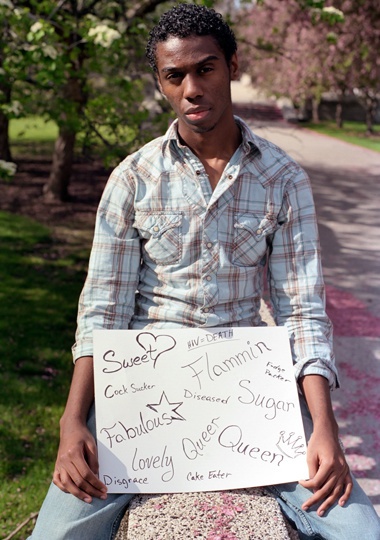 HIV = DEATH
Sweet
Flammin
Fudge
Packer
Cock Sucker
Diseased
Sugar
Fabulous
Queer
Queen
Lovely
Disgrace
Cake Eater